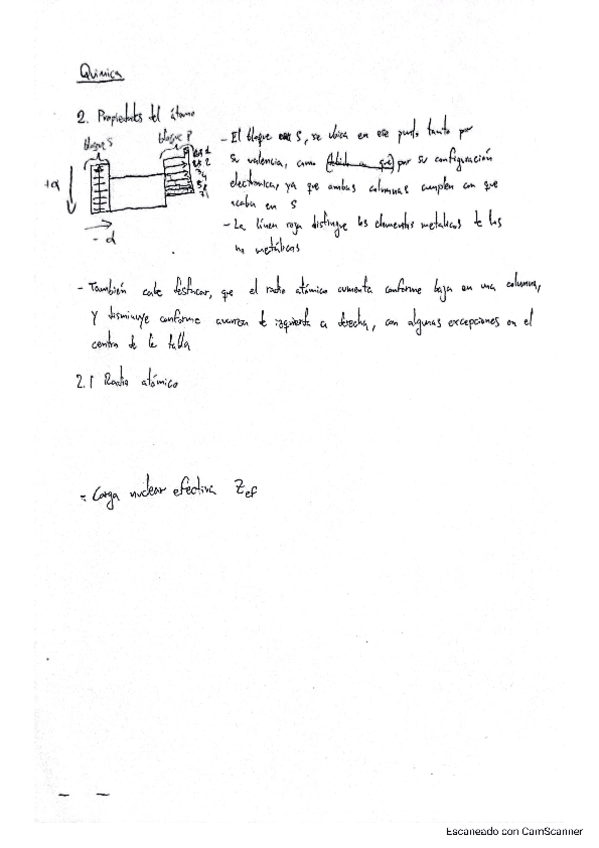 Química
2. Propiedades del átomo
bloque S
bloque P
+a
- a
- El bloque S, se ubica en ese punto tanto por
su valencia, como por su configuración
electrónica, ya que ambas columnas cumplen con que
acaba en S
- La línea roja distingue los elementos metálicos de los
no metálicos
- También cabe destacar, que el radio atómico aumenta conforme baja en una columna,
y disminuye conforme avanza de izquierda a derecha, con algunas excepciones en el
centro de la tabla
2.1 Radio atómico
- Carga nuclear efectiva Zef
Escaneado con CamScanner